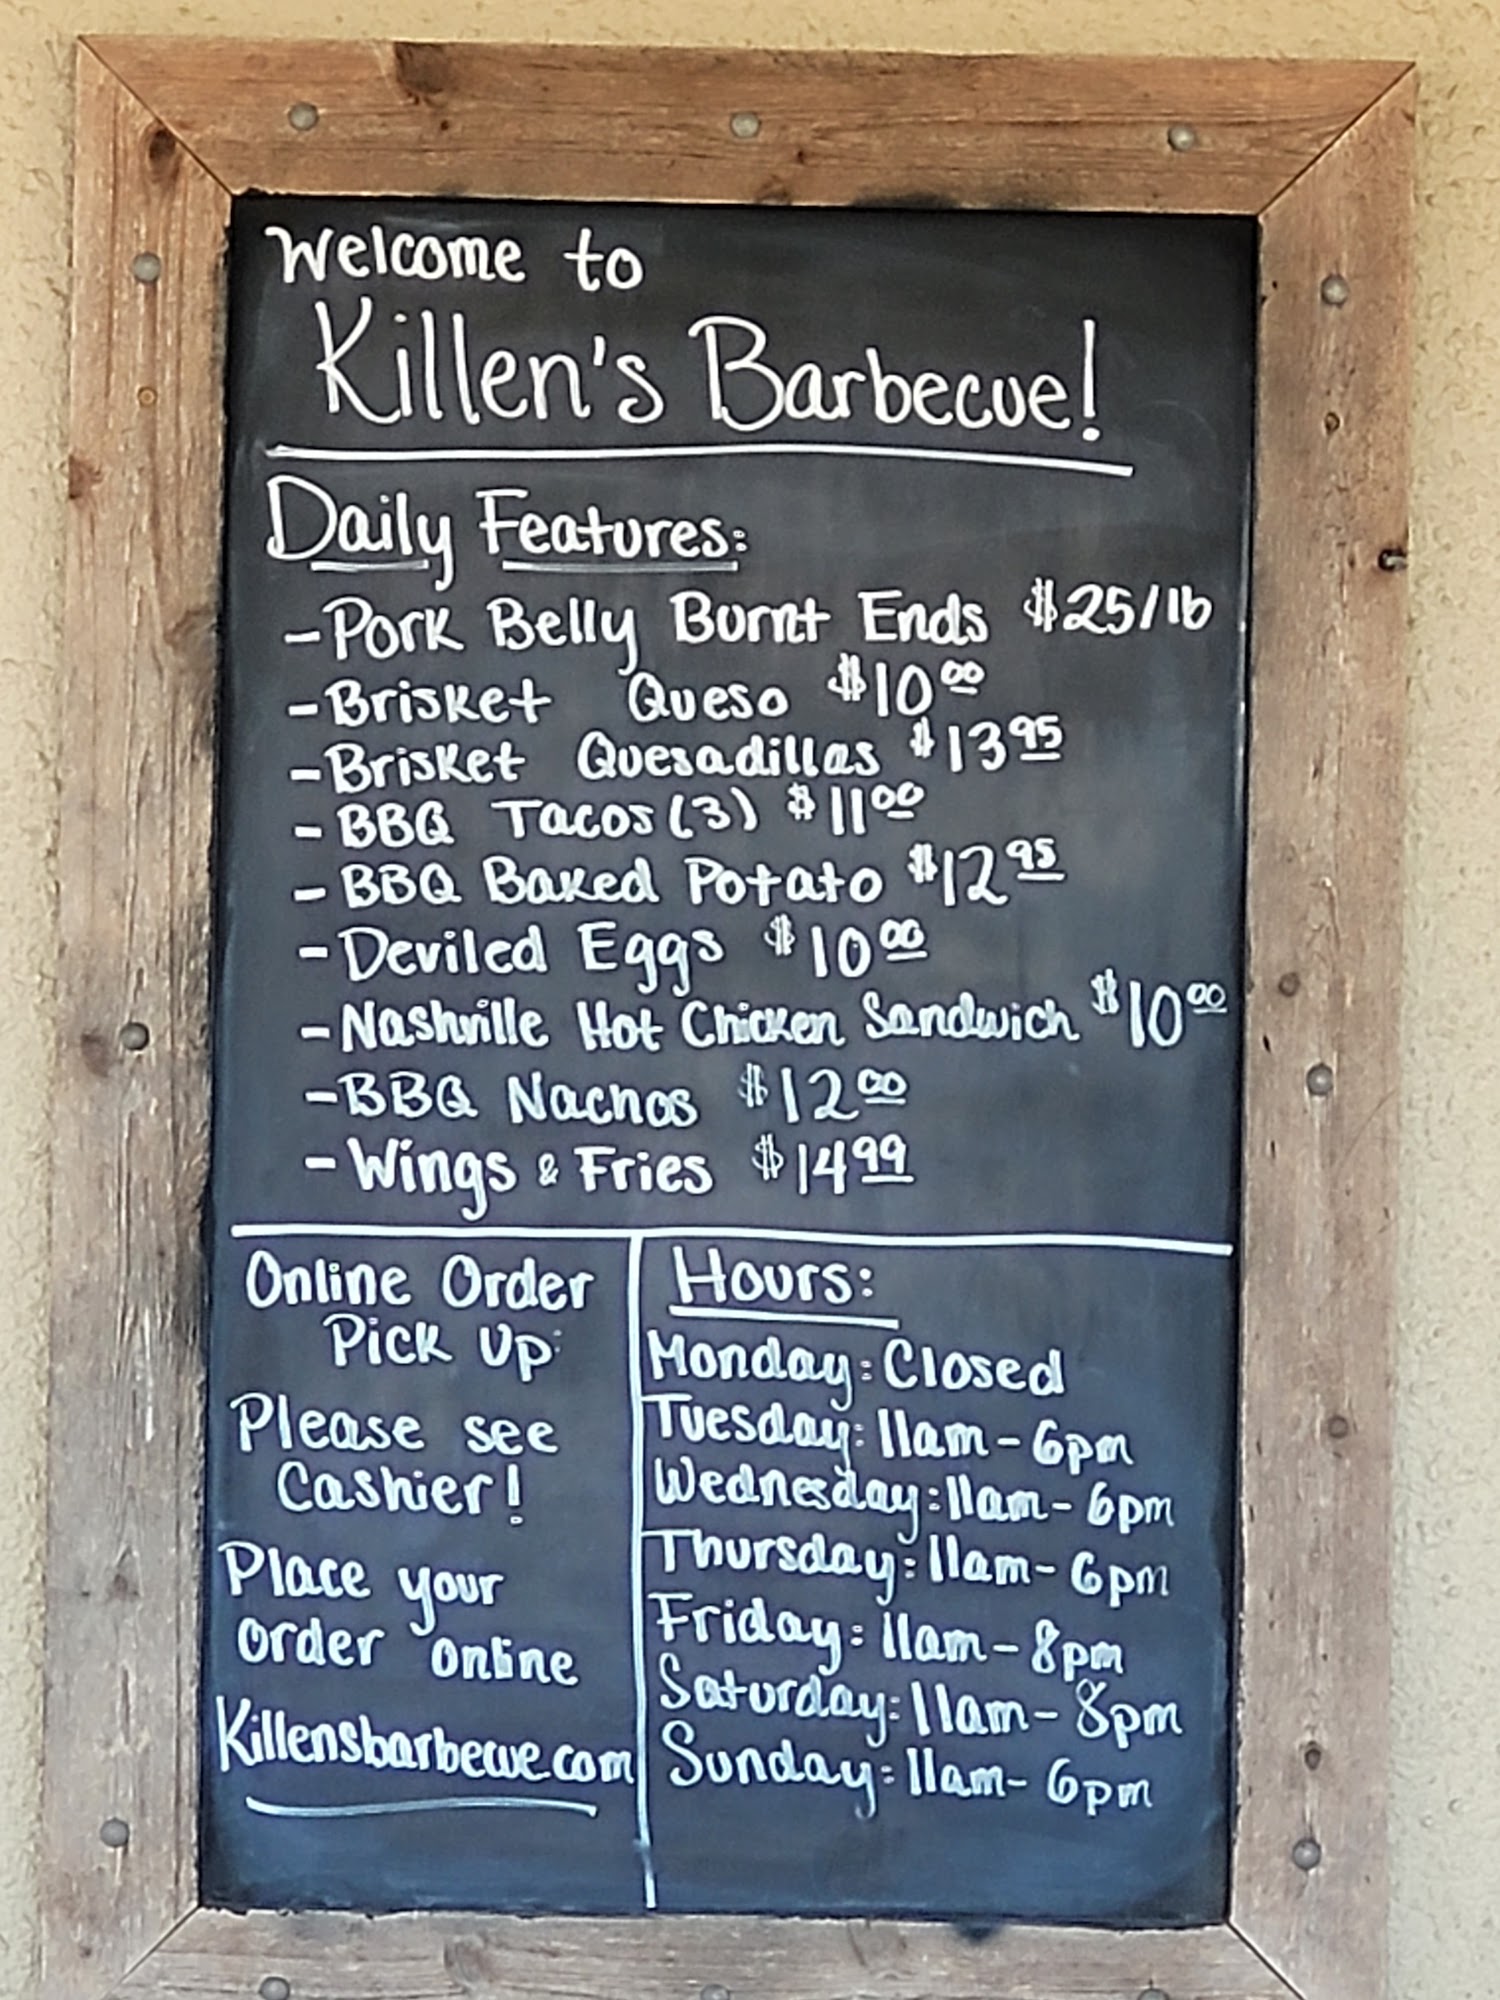 Welcome to
Killen's Barbecue!
Daily Features:
- Pork Belly Burnt Ends $25/lb
- Brisket Queso $10.00
- Brisket Quesadillas $13.95
- BBQ Tacos (3) $11.00
- BBQ Baked Potato $12.95
- Deviled Eggs $10.00
- Nashville Hot Chicken Sandwich $10.00
- BBQ Nachos $12.00
- Wings & Fries $14.99
Online Order
Pick Up:
Please see
Cashier!
Place your
order online
Killensbarbecue.com
Hours:
Monday: Closed
Tuesday: 11am - 6pm
Wednesday: 11am - 6pm
Thursday: 11am - 6pm
Friday: 11am - 8pm
Saturday: 11am - 8pm
Sunday: 11am - 6pm